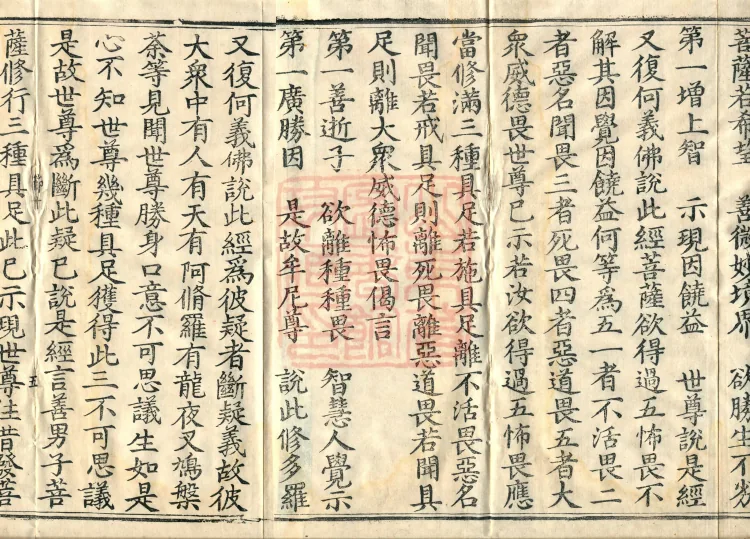 菩薩若希望　善微妙　欲勝生不
第一增上智　示現因饒益　世尊說是經
又復何義佛說此經菩薩欲得過五怖畏不
解其因覺因饒益何等爲五一者不活畏二
者惡名聞畏三者死畏四者惡道畏五者大
衆威德畏世尊已示若汝欲得過五怖畏應
當修滿三種具足若施具足離不活畏惡名
聞畏若戒具足則離死畏離惡道畏若聞具
足則離大衆威德怖畏偈言
第一善逝子　欲離種種畏　智慧人覺示
第一廣勝因　是故牟尼尊　說此修多羅
又復何義佛說此經爲彼疑者斷疑義故彼
大衆中有人有天有阿脩羅有龍夜叉鳩槃
荼等見聞世尊勝身口意不可思議生如是
心不知世尊幾種具足獲得此三不可思議
是故世尊爲斷此疑已說是經言善男子菩
薩修行三種具足此已示現世尊往昔發菩